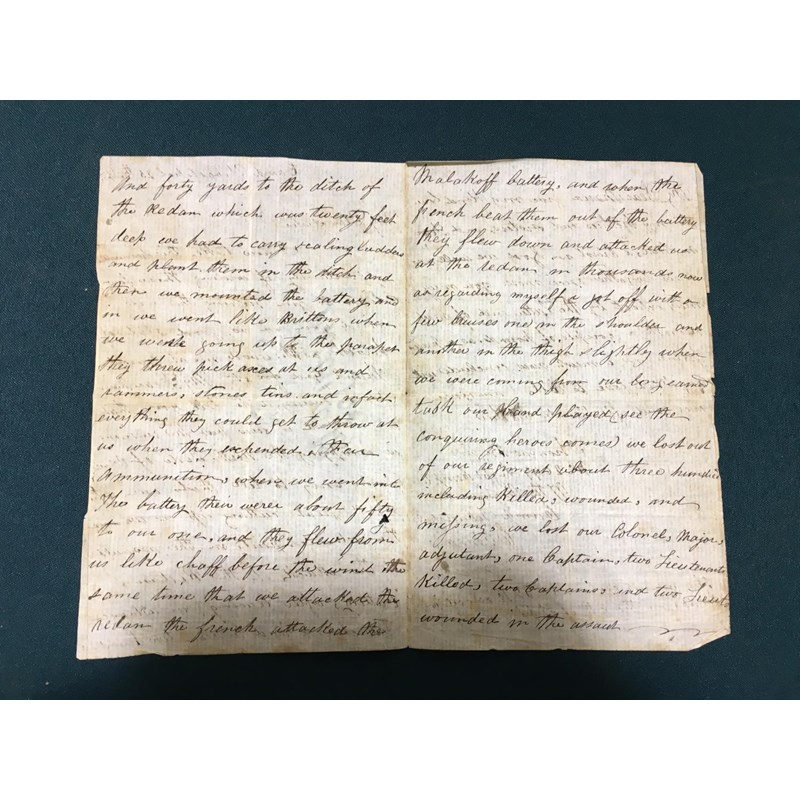 And forty yards to the ditch of
the Redan which was twenty feet
deep we had to carry scaling ladders
and plant them in the ditch and
then we mounted the battery and
in we went like Brittons when
we were going up to the parapet
they threw pick axes at us and
rammers, stones tins and infact
everything they could get to throw at
us when they expended their
Ammunition, when we went into
The battery their were about fifty
to our one, and they flew from
us like chaff before the wind the
same time that we attacked the
redan the french attacked the
Malakoff battery, and when the
french beat them out of the battery
they flew down and attacked us
at the redan in thousands now
as regarding myself I got off with a
few bruises one in the shoulder and
another in the thigh slightly when
we were coming from our
took our Band played (see the
conquiring heroes comes) we lost out
of our regiment about three hundred
including Killed, wounded, and
missing, we lost our Colonel, Major,
adjutant, one Captain, two Lieutenants
Killed, two Captains and two Lieuts
wounded in the assaut